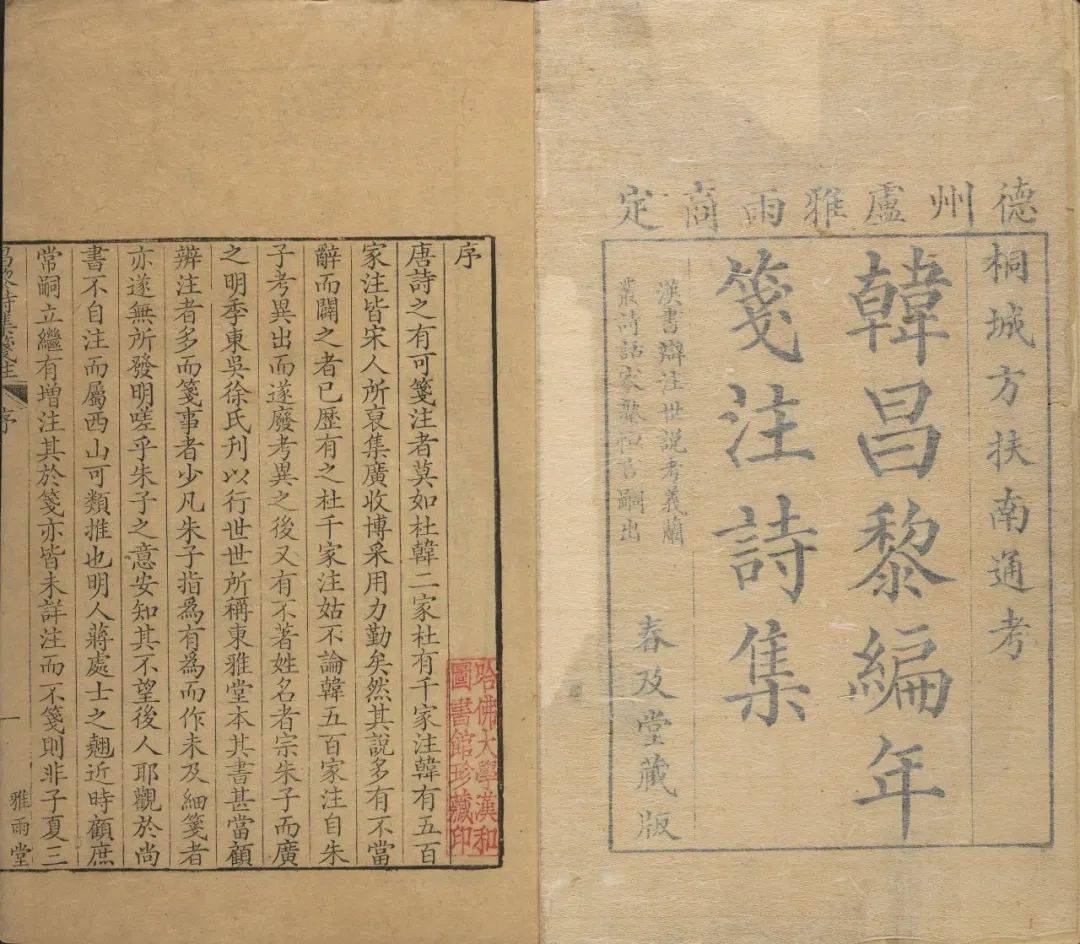 德州盧雅雨商定
桐城方扶南通考
韓昌黎編年
箋注詩集
漢書辯注世說考義蘭
叢詩話
嗣出
春及堂藏版
序
唐詩之有可箋注者莫如杜韓二家杜有千家注韓有五百
家注皆宋人所裒集廣收博采用力勤矣然其說多有不當
辭而闢之者已歷有之杜千家注姑不論韓五百家注自朱
子考異出而遂廢考異之後又有不著姓名者宗朱子而廣
之明季東吳徐氏刊以行世世所稱東雅堂本其書甚當顧
辨注者多而箋事者少凡朱子指爲有爲而作未及細箋者
亦遂無所發明嗟乎朱子之意安知其不望後人耶觀於尚
書不自注而屬西山可類推也明人蔣處士之翹近時顧庶
常嗣立繼有增注其於箋亦皆未詳注而不箋則非子夏三
昌黎詩集箋注
序
一
雅雨堂
哈佛大學漢和
圖書館珍藏印